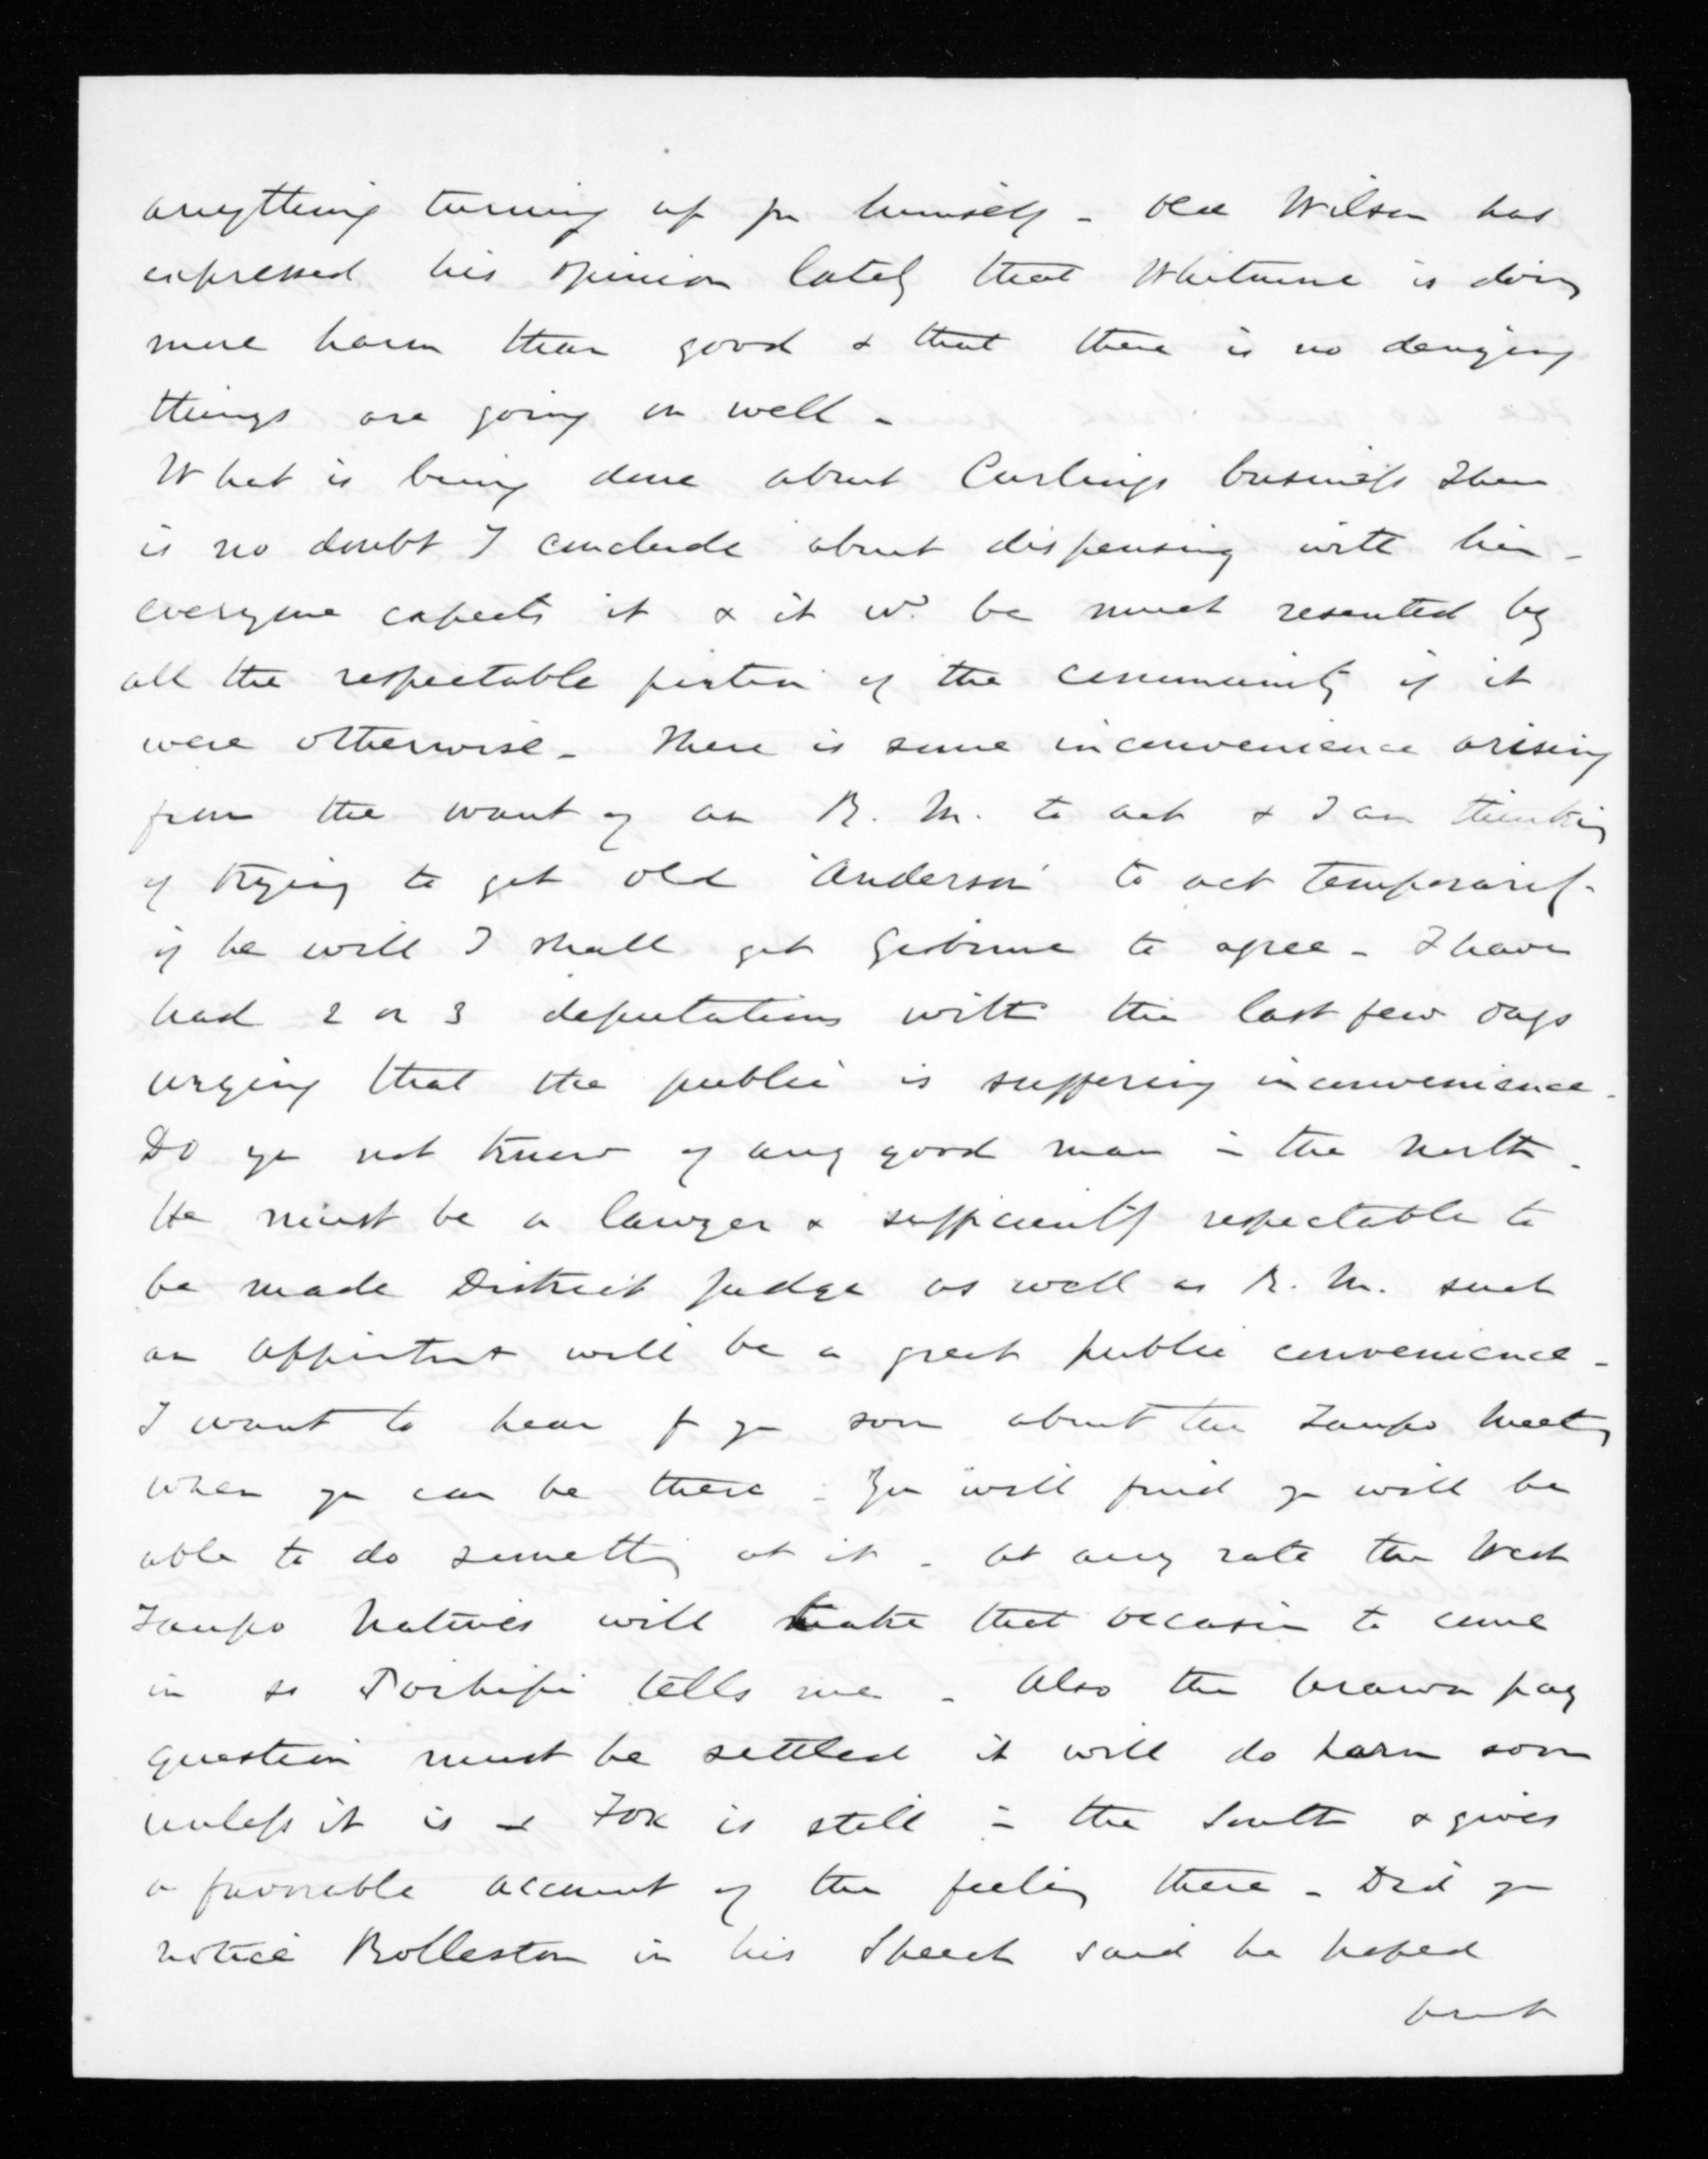 anything turning up for himself - Old Wilson has
expressed his opinion lately that Whitmore is doing
more harm than good & that there is no denying
things are going on well -
What is being done about Curlings business There
is no doubt I conclude about dispensing with him -
everyone expects it & it wd. be much resented by
all the respectable portion of the community if it
were otherwise - There is some inconvenience arising
from the want of an R. M. to act & I am thinking
of trying to get old 'Anderson' to act temporarily -
if he will I shall get Gisborne to agree - I have
had 2 or 3 deputations with the last few days
urging that the public is suffering inconvenience -
Do you not know of any good man in the North -
He must be a lawyer & sufficiently respectable to
be made District Judge as well as R. M. such
an appointmt will be a great public convenience -
I want to hear f you soon about the Taupo Meetg
when you can be there - You will find you will be
able to do something at it - at any rate the West
Taupo Natives will take that occasion to come
in so Poihipi tells me - Also the Arawa pay
question must be settled it will do harm soon
unless it is - Fox is still in the South & gives
a favorable account of the feeling there - Did you
notice Rolleston in his Speech said he hoped